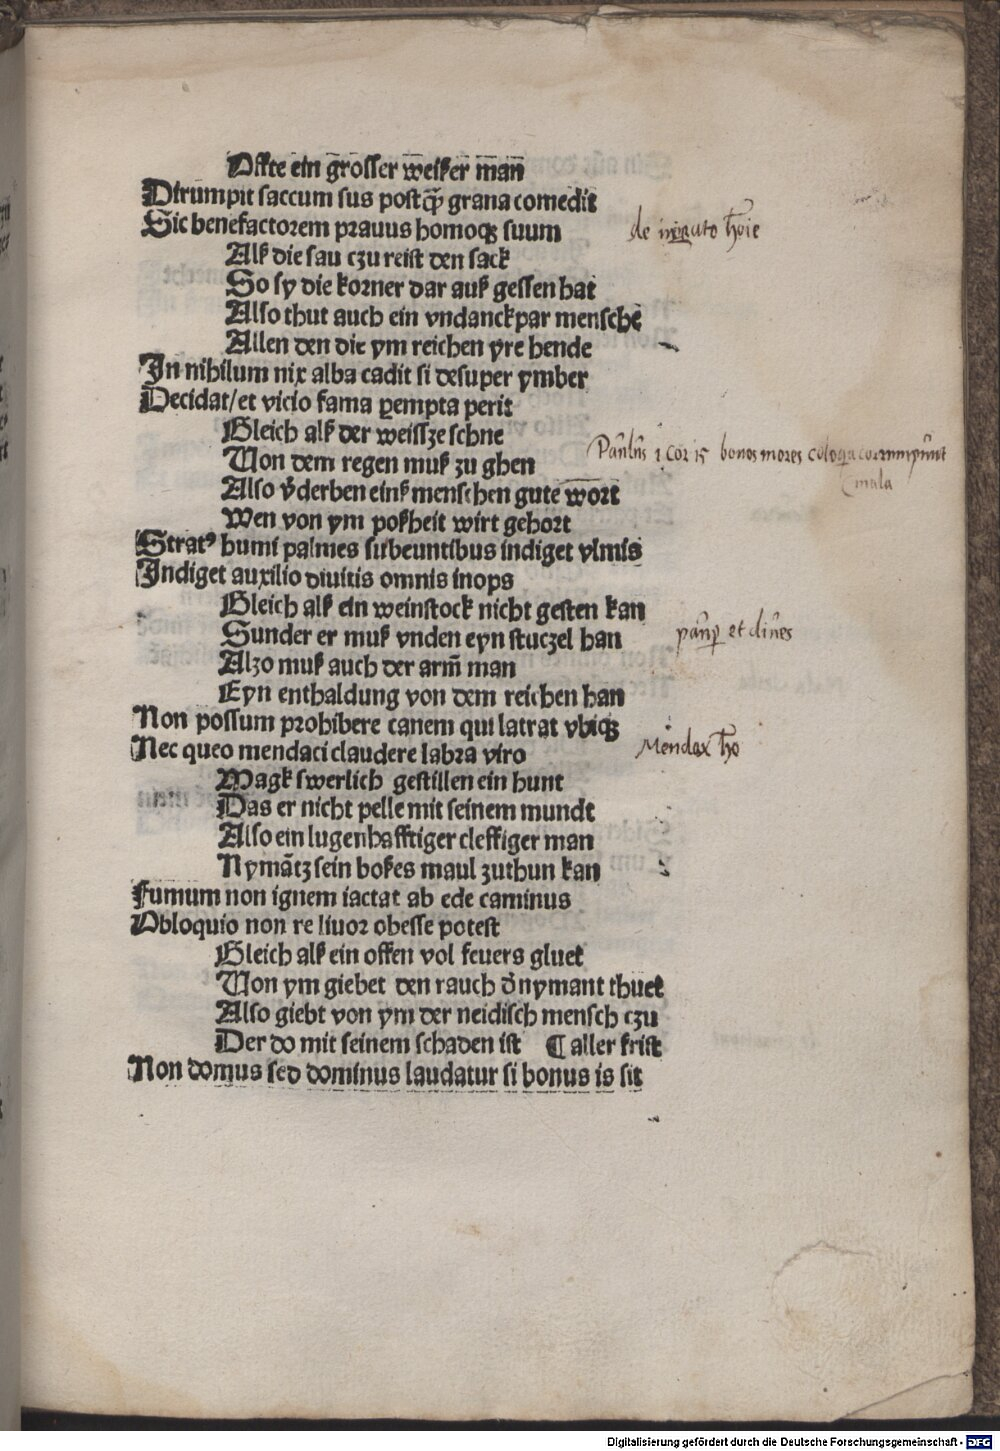 Offte ein grosser weißer man̄
Dirumpit saccum sus postq̄ȝ grana comedit
Sic benefactorem prauus homoqȝ suum
de ingrato ho͞ie
Alß die sau czu reist den sack
So sy die korner dar auß gessen hat
Also thut auch ein vndanckpar menschē
Allen den die ym reichen yre hende
In nihilum nix alba cadit si desuper ymber
Decidat/et vicio fama ꝑempta perit
Gleich alß der weissze schne
Paulus 1 Cor 15 bonos mores coloquia corrumpūnt
Von dem regen muß zu ghen
mala
Also v̄derben einß menschen gute wort
Wen von ym poßheit wirt gehort
Stratꝰ humi palmes subeuntibus indiget vlmis
Indiget auxilio diuitis omnis inops
Gleich alß ein weinstock nicht gesten kan
Sunder er muß vnden eyn stuczel han
paup̱ et diues
Alzo muß auch der arm̄ man
Eyn enthaldung von dem reichen han
Non possum prohibere canem qui latrat vbiqȝ
Nec queo mendaci claudere labra viro
Mendax ho͞
Magk swerlich gestillen ein hunt
Das er nicht pelle mit seinem mundt
Also ein lugenhafftiger cleffiger man
Nymātz sein boßes maul zuthun kan
Fumum non ignem iactat ab ede caminus
Obloquio non re liuor obesse potest
Gleich alß ein offen vol feuers gluet
Von ym giebet den rauch d̄ nymant thuet
Also giebt von ym der neidisch mensch czu
Der do mit seinem schaden ist ¶ aller frist
Non domus sed dominus laudatur si bonus is sit
Digitalisierung gefördert durch die Deutsche Forschungsgemeinschaft - DFG